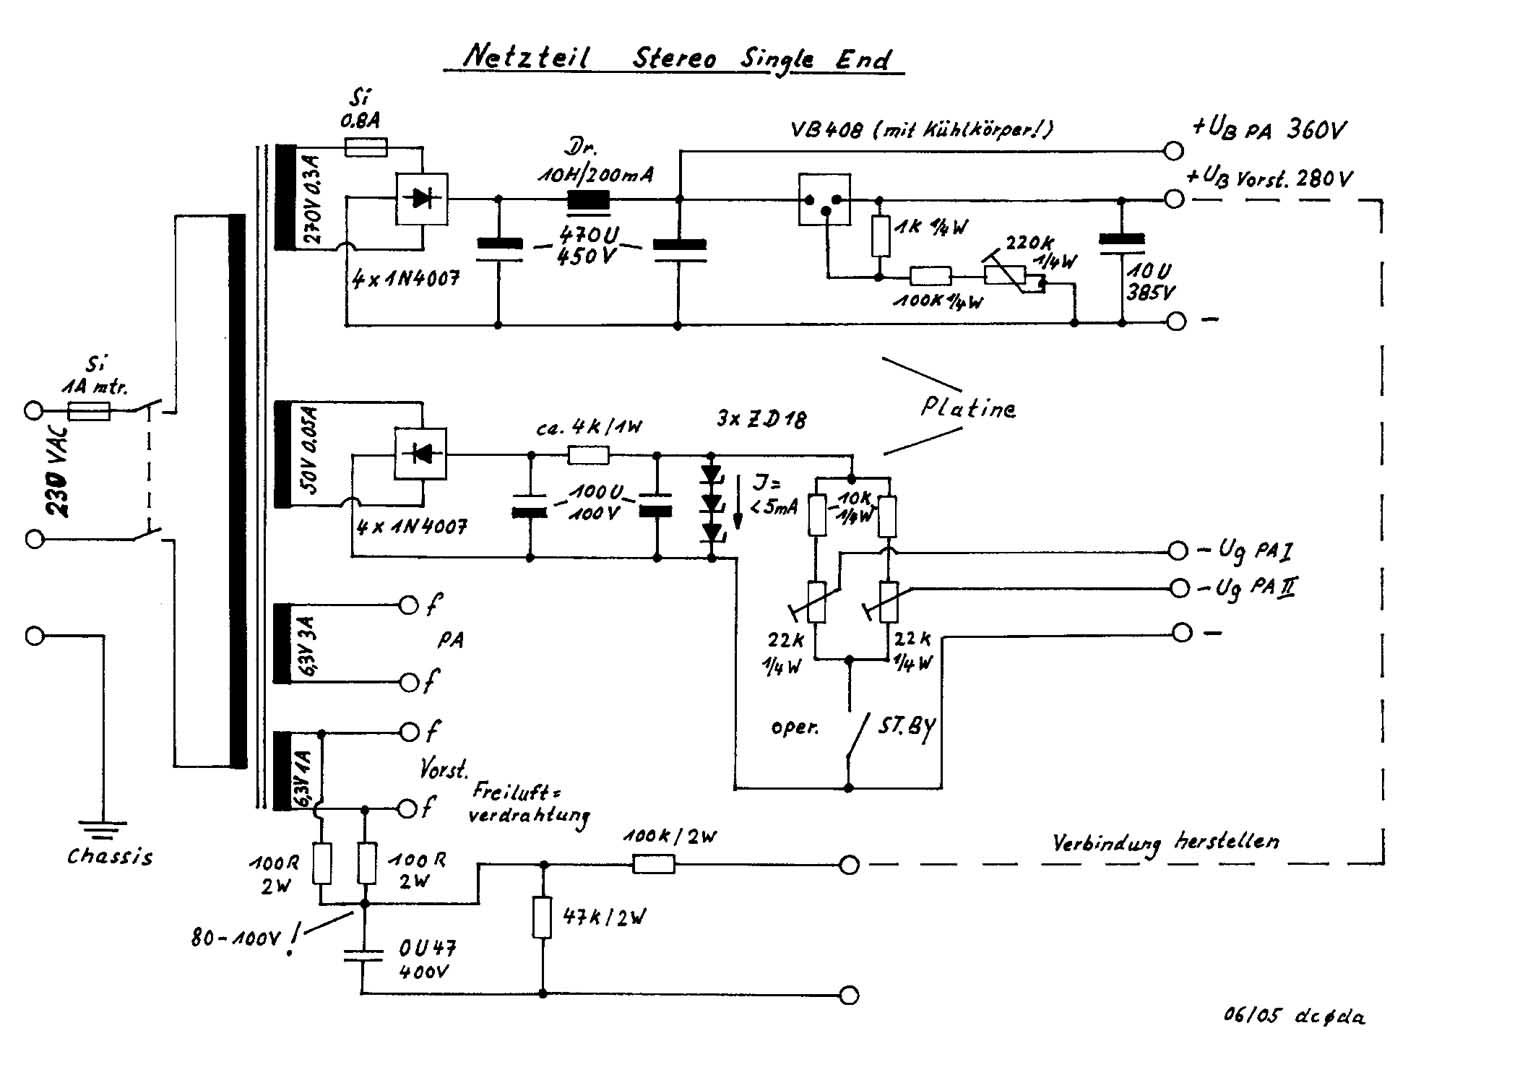 Netzteil Stereo Single End
Si
0.8A
270V 0.3A
4x1N4007
Dr.
10H/200mA
470U
450V
VB408 (mit Kühlkörper!)
+UB PA 360V
+UB Vorst. 280V
1K 1/4W
220K
1/4W
100K 1/4W
10U
385V
–
Si
1A mtr.
230 VAC
50V 0.05A
4x1N4007
ca. 4K/1W
100U
100V
3x ZD18
J=
<5mA
Platine
10K
1/4W
22K
1/4W
22K
1/4W
-Ug PA I
-Ug PA II
–
oper.
ST.BY
6,3V 3A
f
PA
f
6,3V 1A
f
Vorst.
f
Freiluft=
verdrahtung
Chassis
100R
2W
100R
2W
80-100V!
0U47
400V
47K/2W
100K/2W
Verbindung herstellen
06/05 dcøda